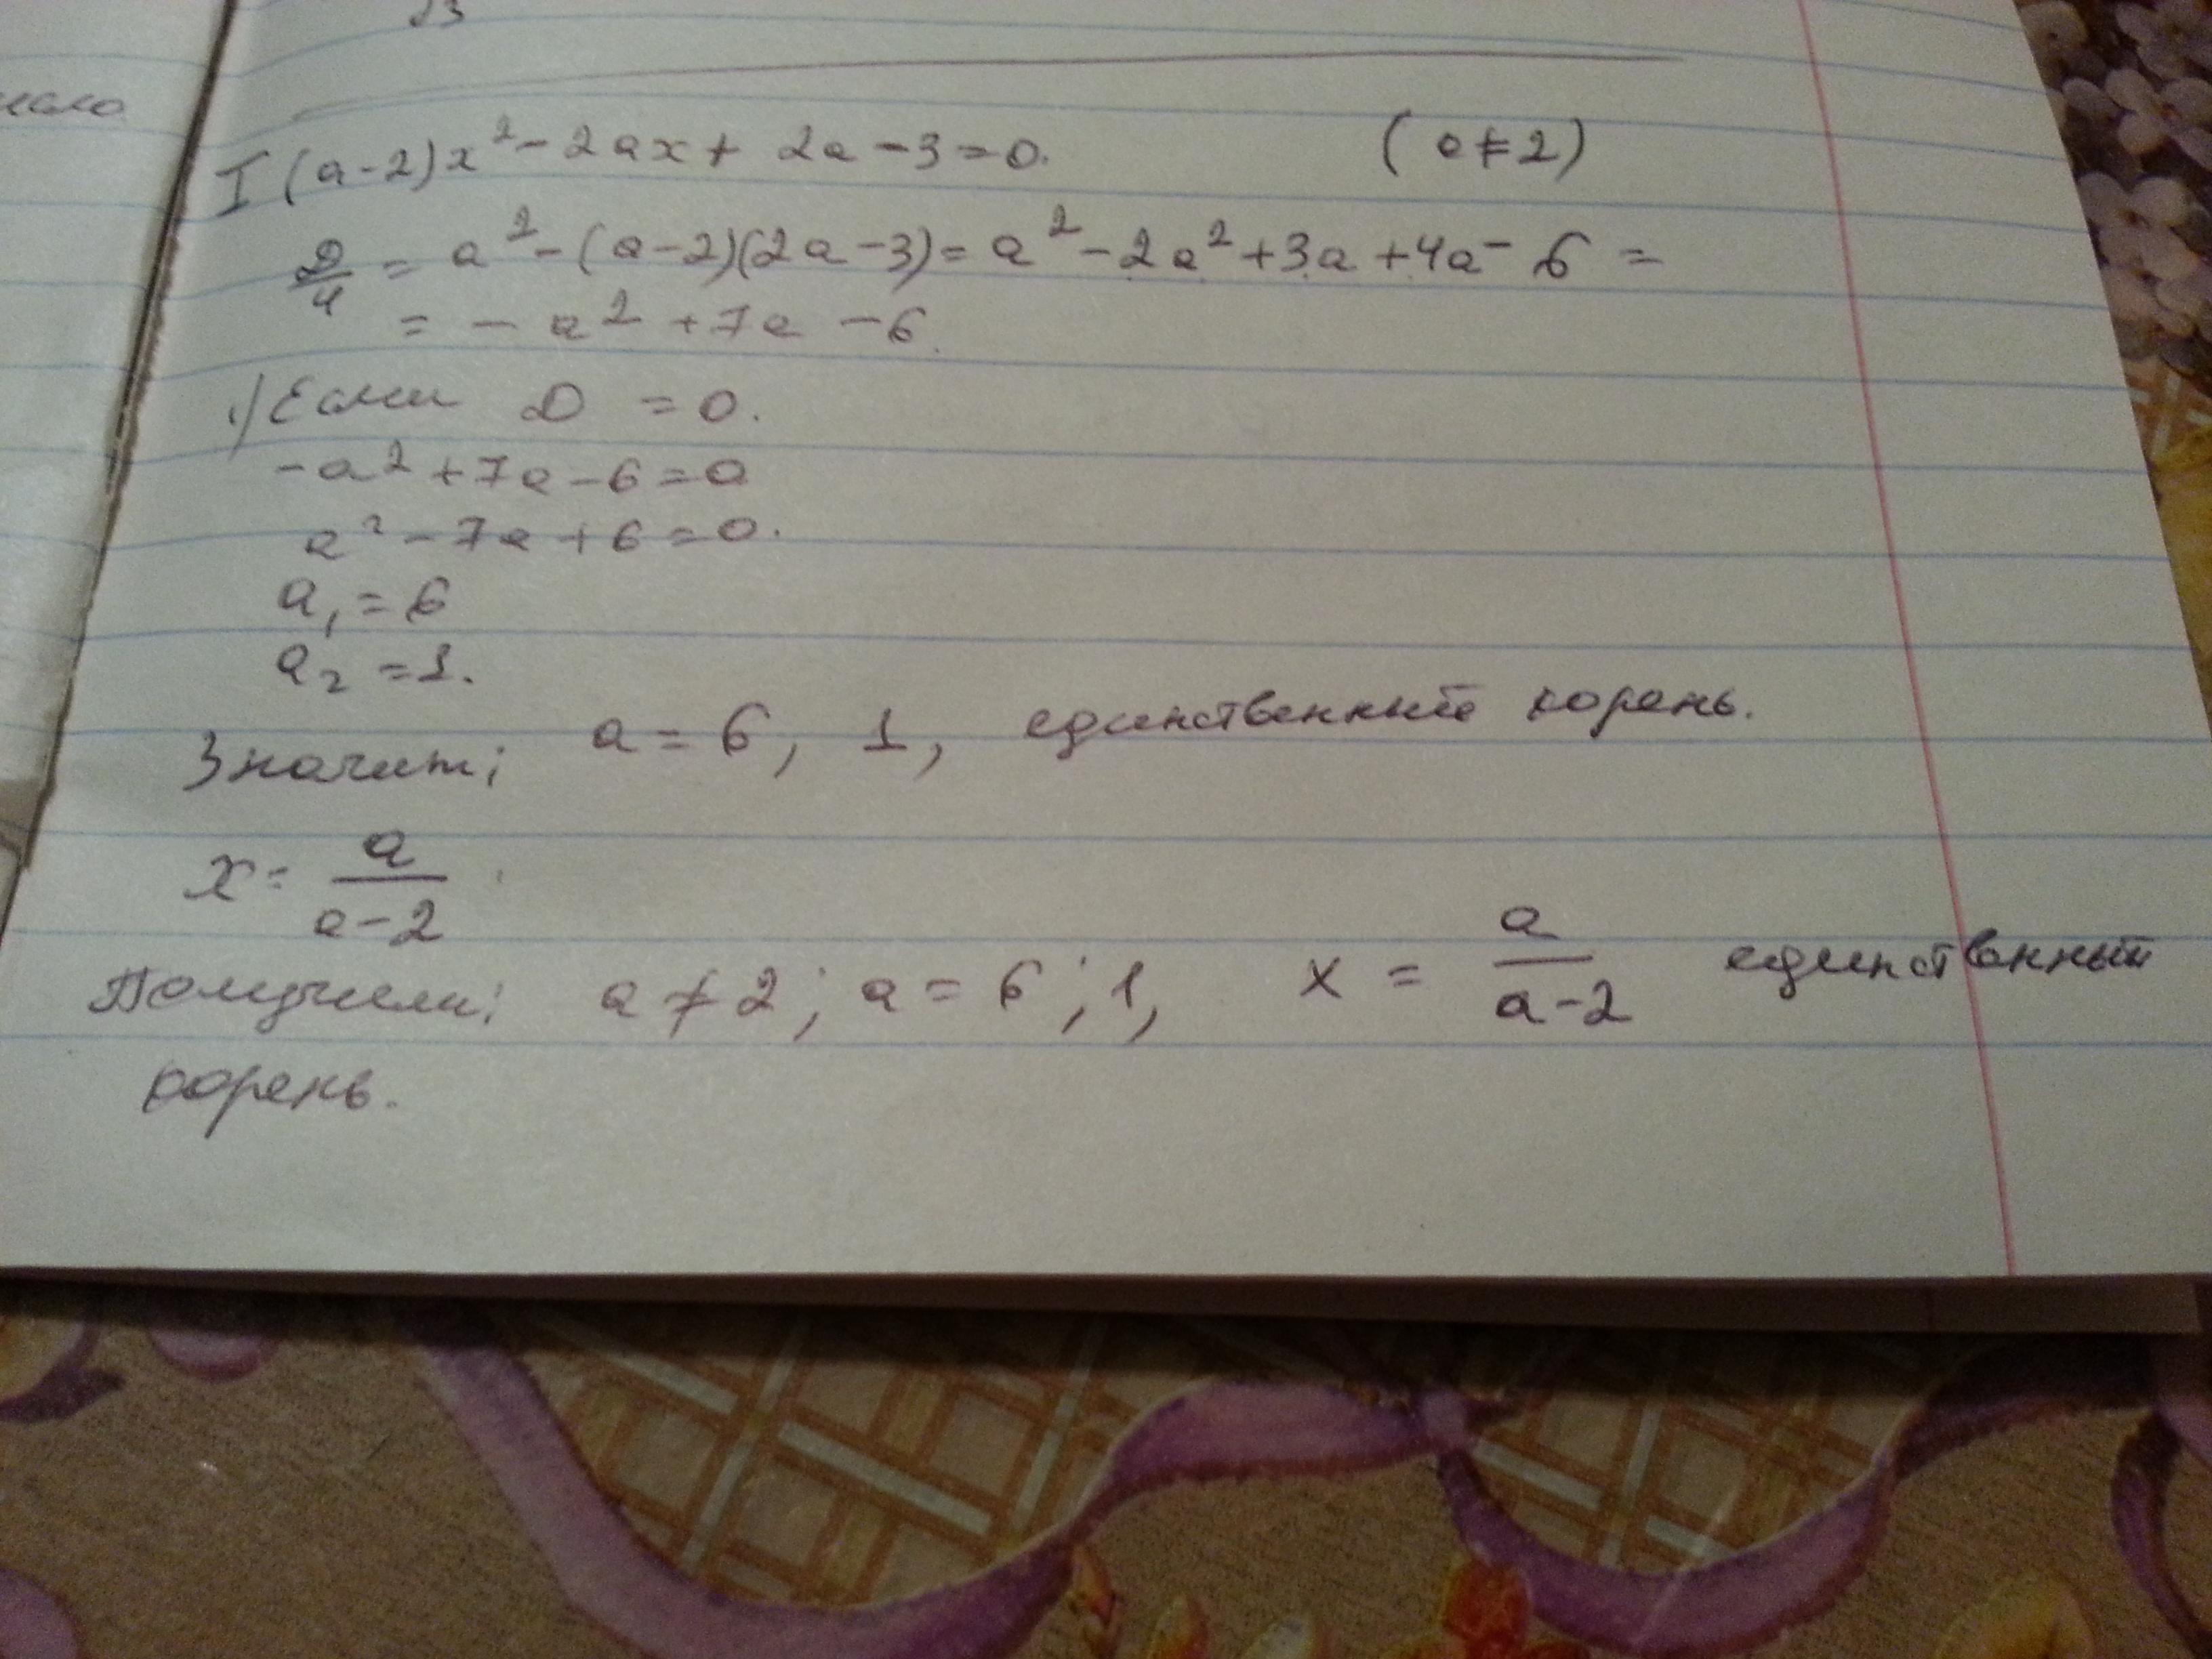 I (a-2)x² - 2ax + 2a - 3 = 0. (a ≠ 2)
D/4 = a² - (a-2)(2a-3) = a² - 2a² + 3a + 4a - 6 =
= - a² + 7a - 6.
1) Если D = 0.
-a² + 7a - 6 = 0
a² - 7a + 6 = 0.
a₁ = 6
a₂ = 1.
Значит; a = 6, 1, единственный корень.
x = a/(a-2)
Получили: a ≠ 2; a = 6; 1, x = a/(a-2) единственный
корень.